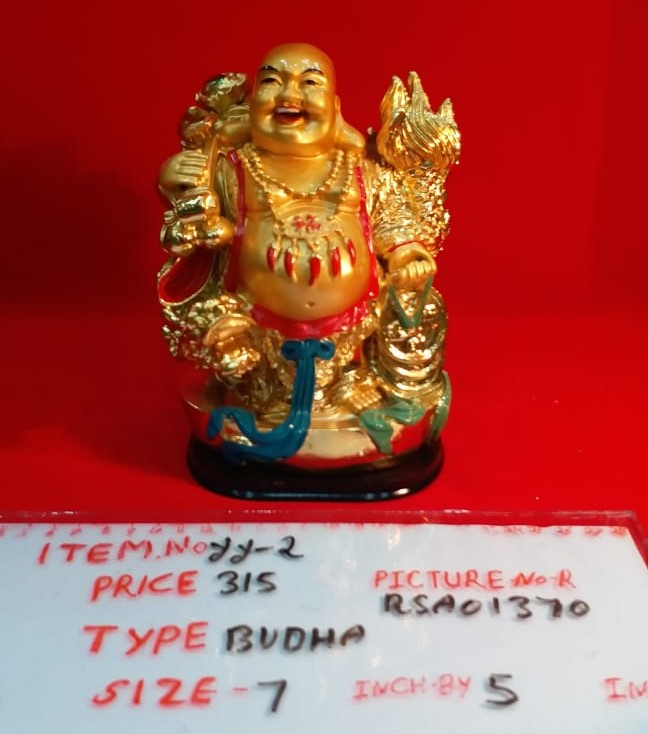 ITEM.No yy-2
PRICE 315
PICTURE No-R
RSA01370
TYPE BUDHA
SIZE - 7 INCH-BY 5 IN